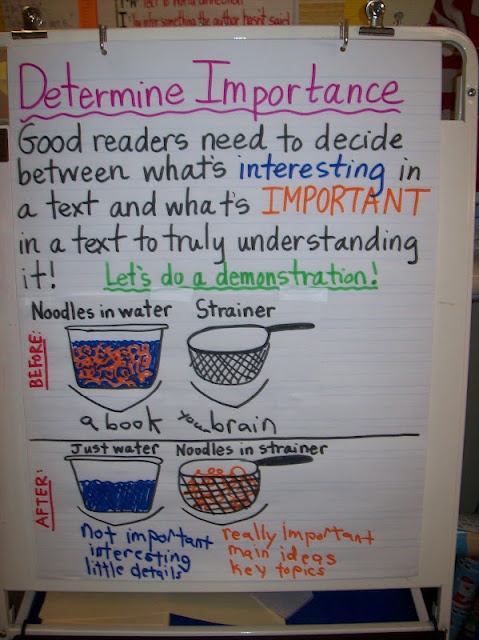 I infer something the author hasn't said
Determine Importance
Good readers need to decide
between what's interesting in
a text and what's IMPORTANT
in a text to truly understanding
it! Let's do a demonstration!
Noodles in water Strainer
BEFORE:
a book your brain
Just water Noodles in strainer
AFTER:
not important really important
interesting main ideas
little details key topics